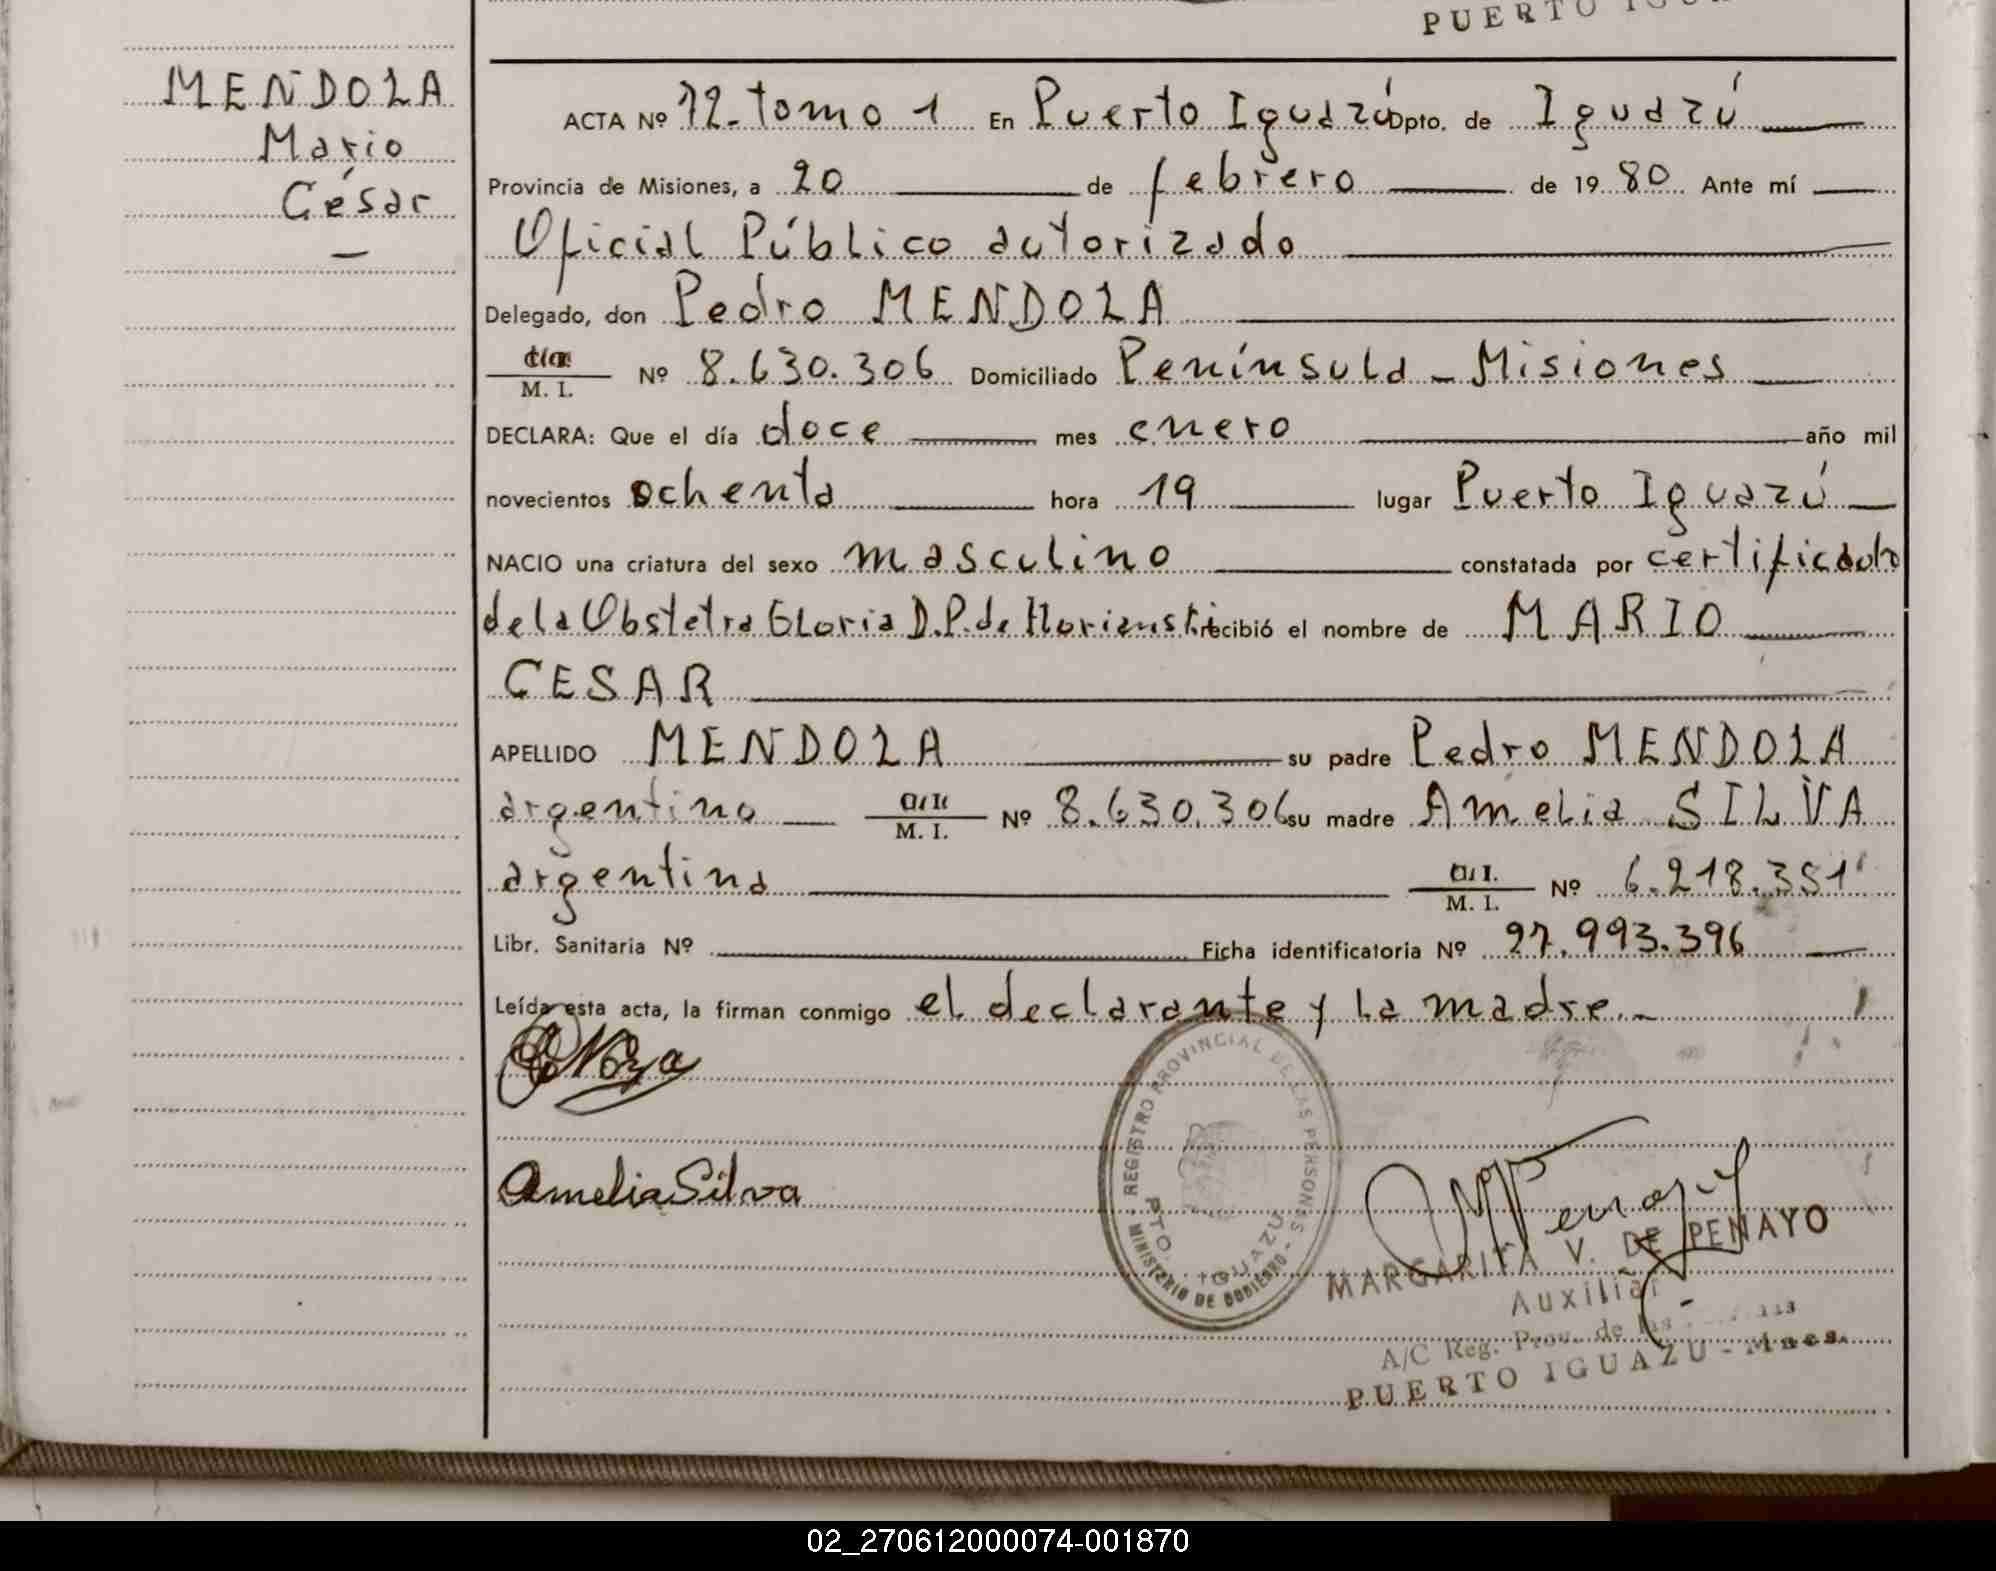 PUERTO IGUA
MENDOZA
Mario
César
—
ACTA Nº 72-tomo 1 En Puerto Iguazú Dpto. de Iguazú
Provincia de Misiones, a 20 de febrero de 1980 Ante mí
Oficial Público autorizado
Delegado, don Pedro MENDOZA
M. I. Nº 8.630.306 Domiciliado Península - Misiones
DECLARA: Que el día doce mes enero año mil
novecientos ochenta hora 19 lugar Puerto Iguazú
NACIO una criatura del sexo masculino constatada por certificado
de la Obstetra Gloria D.P. de recibió el nombre de MARIO
CESAR
APELLIDO MENDOZA su padre Pedro MENDOZA
argentino M. I. Nº 8.630.306 su madre Amelia SILVA
argentina M. I. Nº 6.218.351
Libr. Sanitaria Nº Ficha identificatoria Nº 27.993.396
Leída esta acta, la firman conmigo el declarante y la madre.-
Amelia Silva
REGISTRO PROVINCIAL DE LAS PERSONAS - MINISTERIO DE GOBIERNO -
PTO. IGUAZU
MARGARITA V. DE PENAYO
Auxiliar
A/C Reg. Prov. de las
PUERTO IGUAZU - Mnes.
02_270612000074-001870